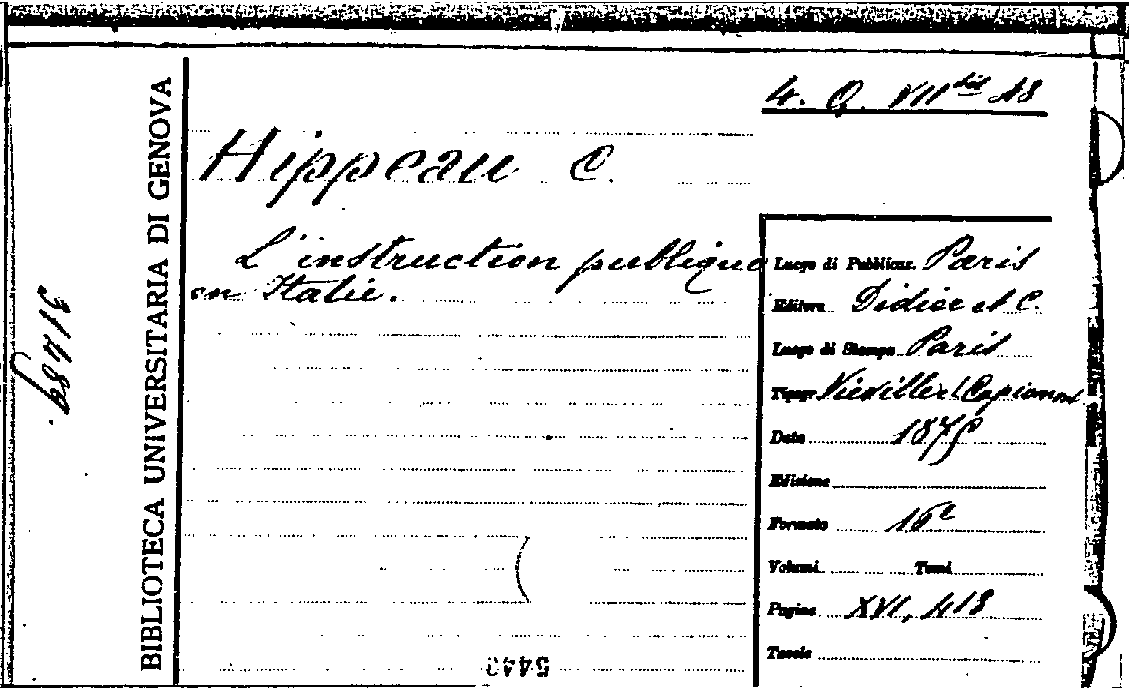 4. Q. VII bis 18
Hippeau C.
L'instruction publique
en Italie.
Luogo di Pubblicaz. Paris
Editore Didier et C.
Luogo di Stampa Paris
Tipogr. Viéville et Capiomont
Data 1875
Edizione
Formato 16°
Volumi Tomi
Pagine XVI, 418
Tavole
BIBLIOTECA UNIVERSITARIA DI GENOVA